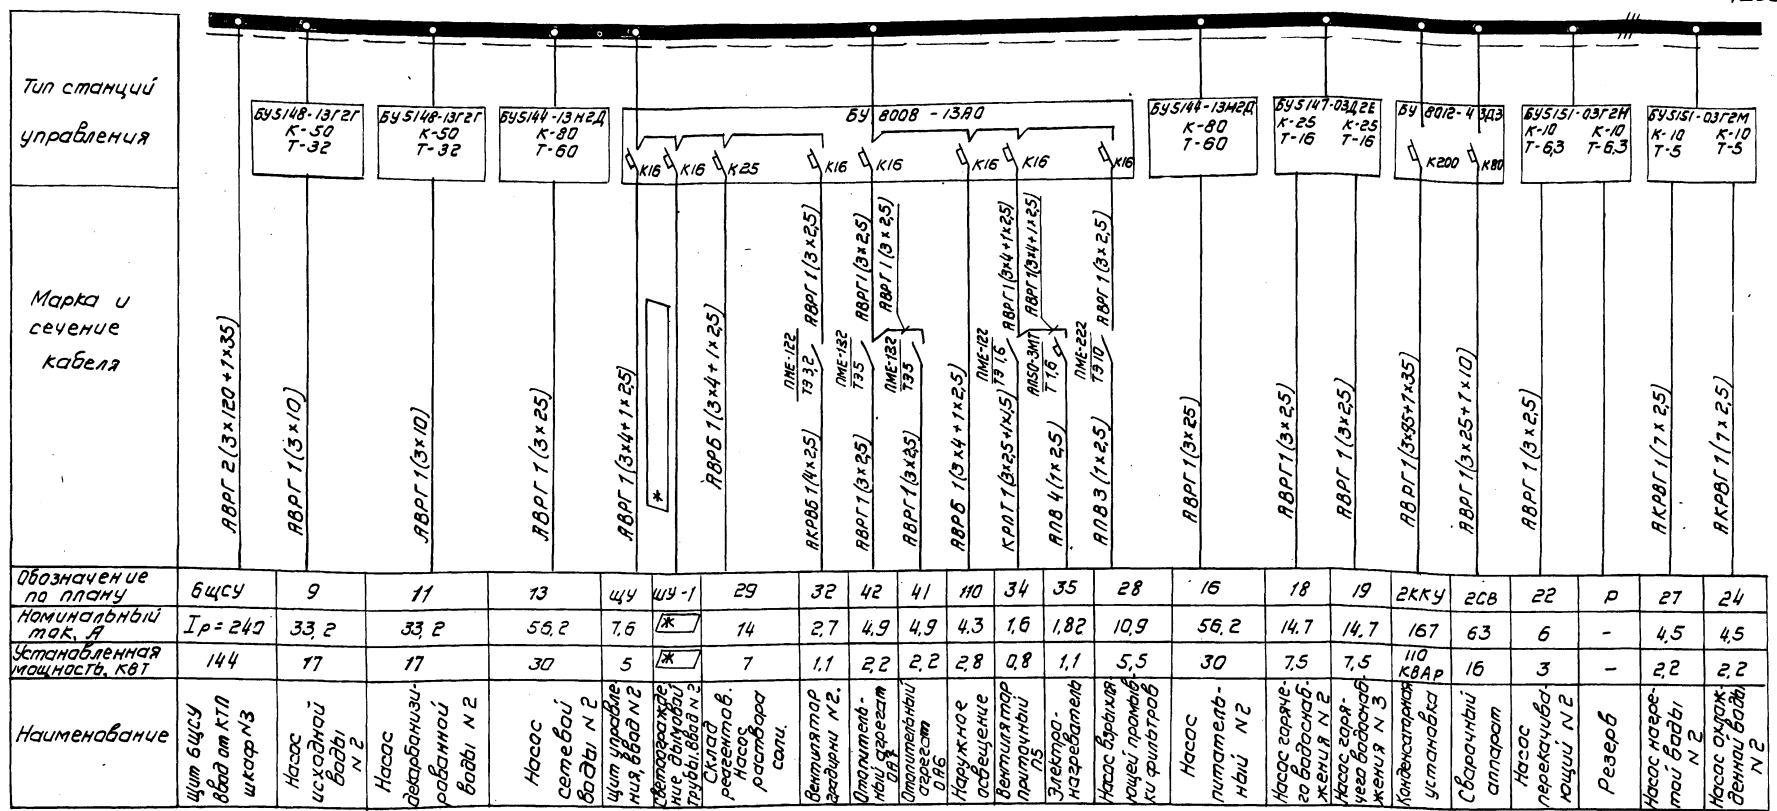 Тип станций
управления
БУ5148-13Г2Г
К-50
Т-32
БУ5148-13Г2Г
К-50
Т-32
БУ5144-13Н2Д
К-80
Т-60
БУ 8008 - 13А0
К16
К16
К25
К16
К16
К16
К16
К16
БУ5144-13Н2Д
К-80
Т-60
БУ5147-03Д2Е
К-25 К-25
Т-16 Т-16
БУ 8012-43Д3
К200
К80
БУ5151-03Г2М
К-10 К-10
Т-6,3 Т-6,3
БУ5151-03Г2М
К-10 К-10
Т-5 Т-5
Марка и
сечение
кабеля
АВРГ 2(3×120+1×35)
АВРГ 1(3×10)
АВРГ 1(3×10)
АВРГ 1(3×25)
АВРГ 1(3×4+1×2,5)
*
АВРБ 1(3×4+1×2,5)
АВРГ 1(3×2,5)
ПМЕ-122
ТЭ 3,2
АКРВБ 1(4×2,5)
АВРГ 1(3×2,5)
ПМЕ-132
ТЭ5
АВРГ 1(3×2,5)
АВРГ 1(3×2,5)
ПМЕ-132
ТЭ5
АВРГ 1(3×2,5)
АВРБ 1(3×4+1×2,5)
АВРГ 1(3×4+1×2,5)
ПМЕ-122
ТЭ 1,6
КРПТ 1(3×2,5+1×1,5)
АВРГ 1(3×4+1×2,5)
АП50-3МТ
Т 1,6
АПВ 4(1×2,5)
АВРГ 1(3×2,5)
ПМЕ-222
ТЭ 10
АПВ 3(1×2,5)
АВРГ 1(3×25)
АВРГ 1(3×2,5)
АВРГ 1(3×2,5)
АВРГ 1(3×95+1×35)
АВРГ 1(3×25+1×10)
АВРГ 1(3×2,5)
АКРВГ 1(7×2,5)
АКРВГ 1(7×2,5)
Обозначение
по плану
6ЩСУ 9 11 13 ЩУ ШУ-1 29 32 42 41 110 34 35 28 16 18 19 2ККУ 2СВ 22 Р 27 24
Номинальный
ток, А
Iр=240 33,2 33,2 56,2 7,6 * 14 2,7 4,9 4,9 4,3 1,6 1,82 10,9 56,2 14,7 14,7 167 63 6 - 4,5 4,5
Установленная
мощность, кВт
144 17 17 30 5 * 7 1,1 2,2 2,2 2,8 0,8 1,1 5,5 30 7,5 7,5 110 КВАР 16 3 - 2,2 2,2
Наименование
Щит 6ЩСУ
Ввод от КТП
шкаф №3
Насос
исходной
воды
№2
Насос
декарбонизи-
рованной
воды №2
Насос
сетевой
воды №2
Щит управле-
ния, ввод №2
Светоогражде-
ние дымовой
трубы, ввод №2
Склад
реагентов.
Насос
раствора
соли.
Вентилятор
градирни №2.
Отопитель-
ный агрегат
Отопительный
агрегат
ОА6
Наружное
освещение
Вентилятор
приточный
П5
Электро-
нагреватель
Насос взрыхля-
ющей промыв-
ки фильтров
Насос
питатель-
ный №2
Насос горяче-
го водоснаб-
жения №2
Насос горя-
чего водоснаб-
жения №3
Конденсаторная
установка
Сварочный
аппарат
Насос
перекачива-
ющий №2
Резерв
Насос нагре-
той воды
№2
Насос охлаж-
денной воды
№2